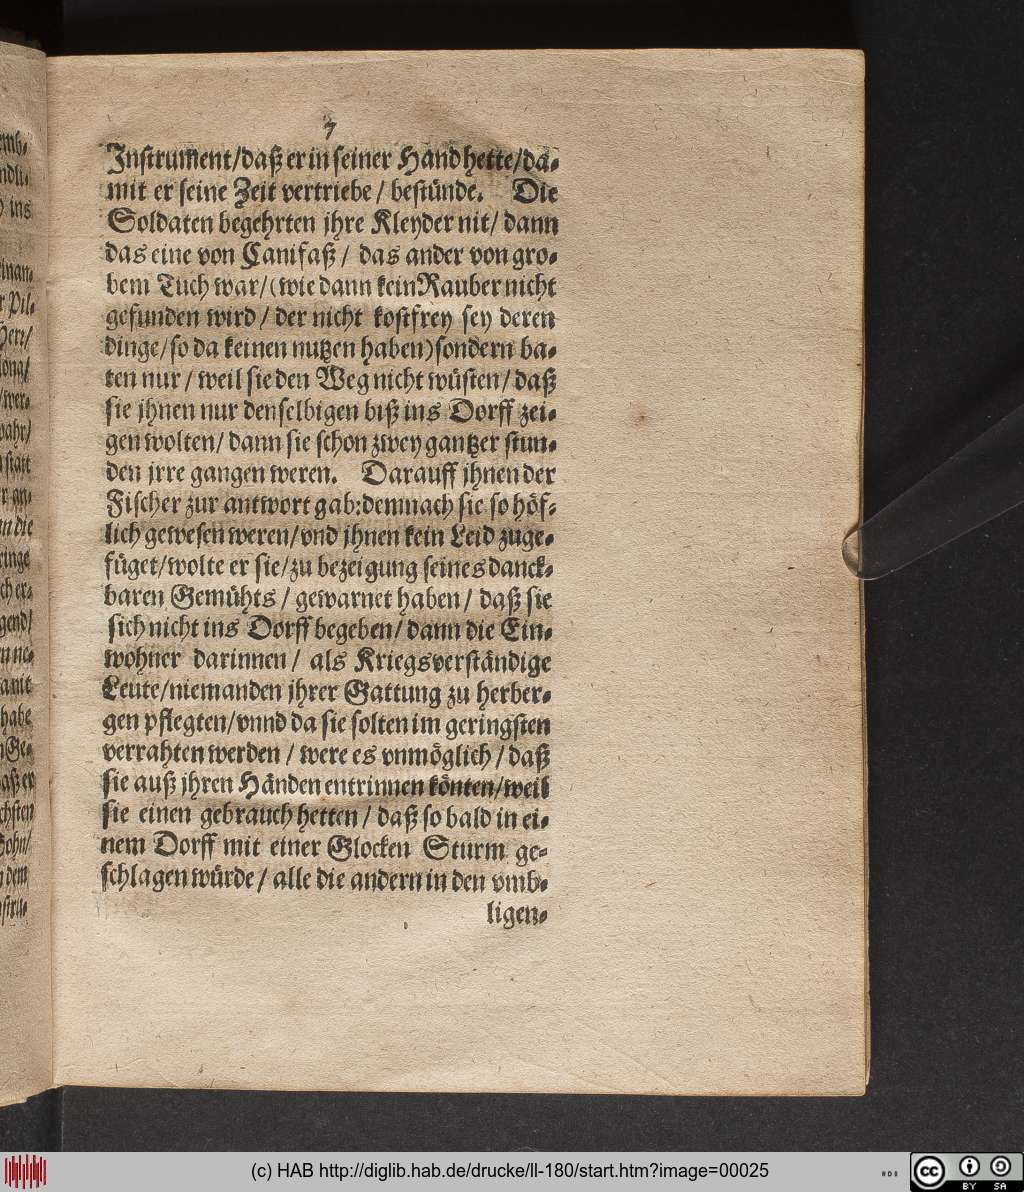 7
Instrument/daß er in seiner Hand hette/da-
mit er seine Zeit vertriebe / bestünde. Die
Soldaten begehrten jhre Kleyder nit/ dann
das eine von Canifaß / das ander von gro-
bem Tuch war/(wie dann kein Rauber nicht
gefunden wird / der nicht kostfrey sey deren
dinge/so da keinen nutzen haben)sondern ba-
ten nur / weil sie den Weg nicht wüsten/ daß
sie jhnen nur denselbigen biß ins Dorff zei-
gen wolten/ dann sie schon zwey gantzer stun-
den jrre gangen weren. Darauff jhnen der
Fischer zur antwort gab:demnach sie so höf-
lich gewesen weren/vnd jhnen kein Leid zuge-
füget/wolte er sie/zu bezeigung seines danck-
baren Gemühts / gewarnet haben / daß sie
sich nicht ins Dorff begeben/ dann die Ein-
wohner darinnen / als Kriegsverständige
Leute/niemanden jhrer Gattung zu herber-
gen pflegten/vnnd da sie solten im geringsten
verrahten werden / were es vnmöglich / daß
sie auß jhren Händen entrinnen könten/weil
sie einen gebrauch hetten / daß so bald in ei-
nem Dorff mit einer Glocken Sturm ge-
schlagen würde / alle die andern in den vmb-
ligen-
(c) HAB http://diglib.hab.de/drucke/ll-180/start.htm?image=00025
cc BY SA